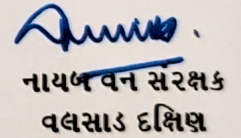 નાયબ વન સંરક્ષક
વલસાડ દક્ષિણ